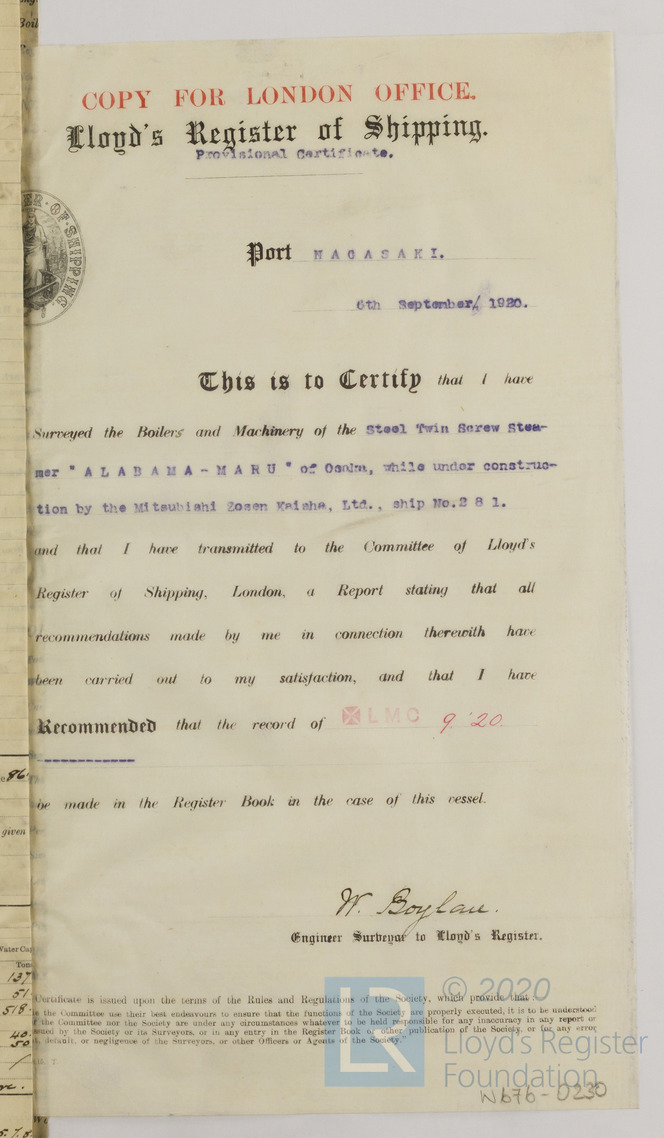 COPY FOR LONDON OFFICE.
Lloyd's Register of Shipping.
Provisional Certificate.
ER·OF·SHIPPING
Port NAGASAKI.
6th September/ 1920.
This is to Certify that I have
Surveyed the Boilers and Machinery of the Steel Twin Screw Stea-
mer "ALABAMA-MARU" of Osaka, while under construc-
tion by the Mitsubishi Zosen Kaisha, Ltd., ship No.281.
and that I have transmitted to the Committee of Lloyd's
Register of Shipping, London, a Report stating that all
recommendations made by me in connection therewith have
been carried out to my satisfaction, and that I have
Recommended that the record of LMC 9.'20
be made in the Register Book in the case of this vessel.
W. Boylan.
Engineer Surveyor to Lloyd's Register.
Certificate is issued upon the terms of the Rules and Regulations of the Society, which provide that:
the Committee use their best endeavours to ensure that the functions of the Society are properly executed, it is to be understood
the Committee nor the Society are under any circumstances whatever to be held responsible for any inaccuracy in any report or
issued by the Society or its Surveyors, or in any entry in the Register Book or other publication of the Society, or for any error
default, or negligence of the Surveyors, or other Officers or Agents of the Society."
© 2020
LR
Lloyd's Register
Foundation
W676-0230
86
given
Water Cap
Ton
137
51
518
40
50